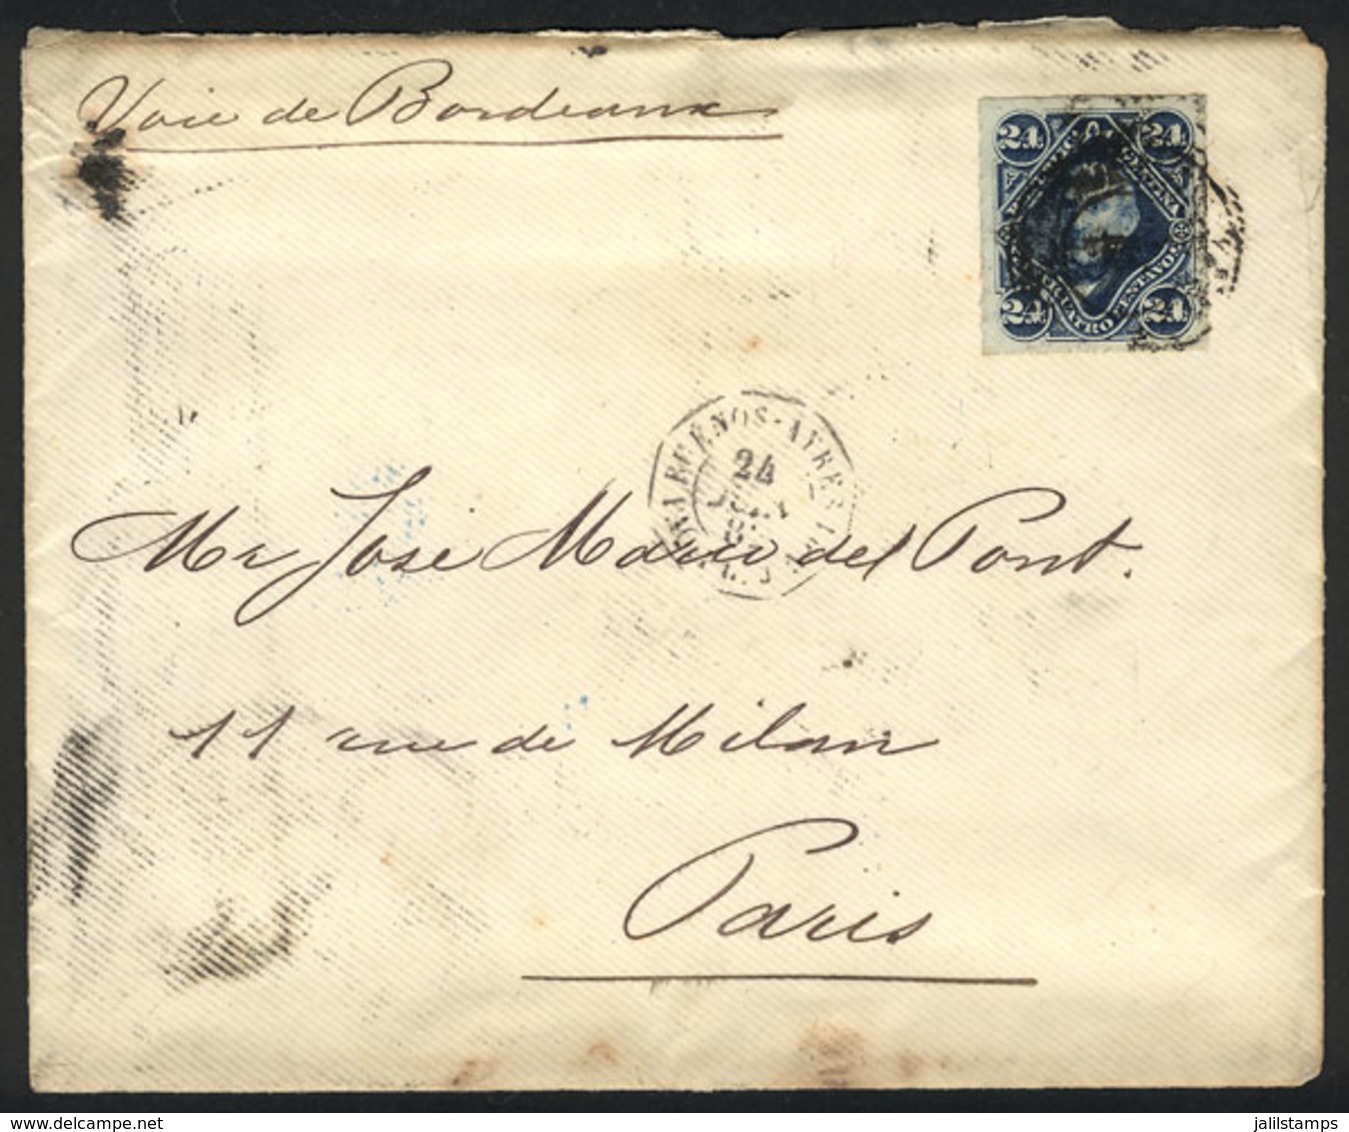 Voie de Bordeaux
24 24
REPUBLICA ARGENTINA
CUATRO CENTAVOS
24 24
BUENOS-AYRES
24
Mr José Maria del Pont.
11 rue de Milan
Paris
jalilstamps